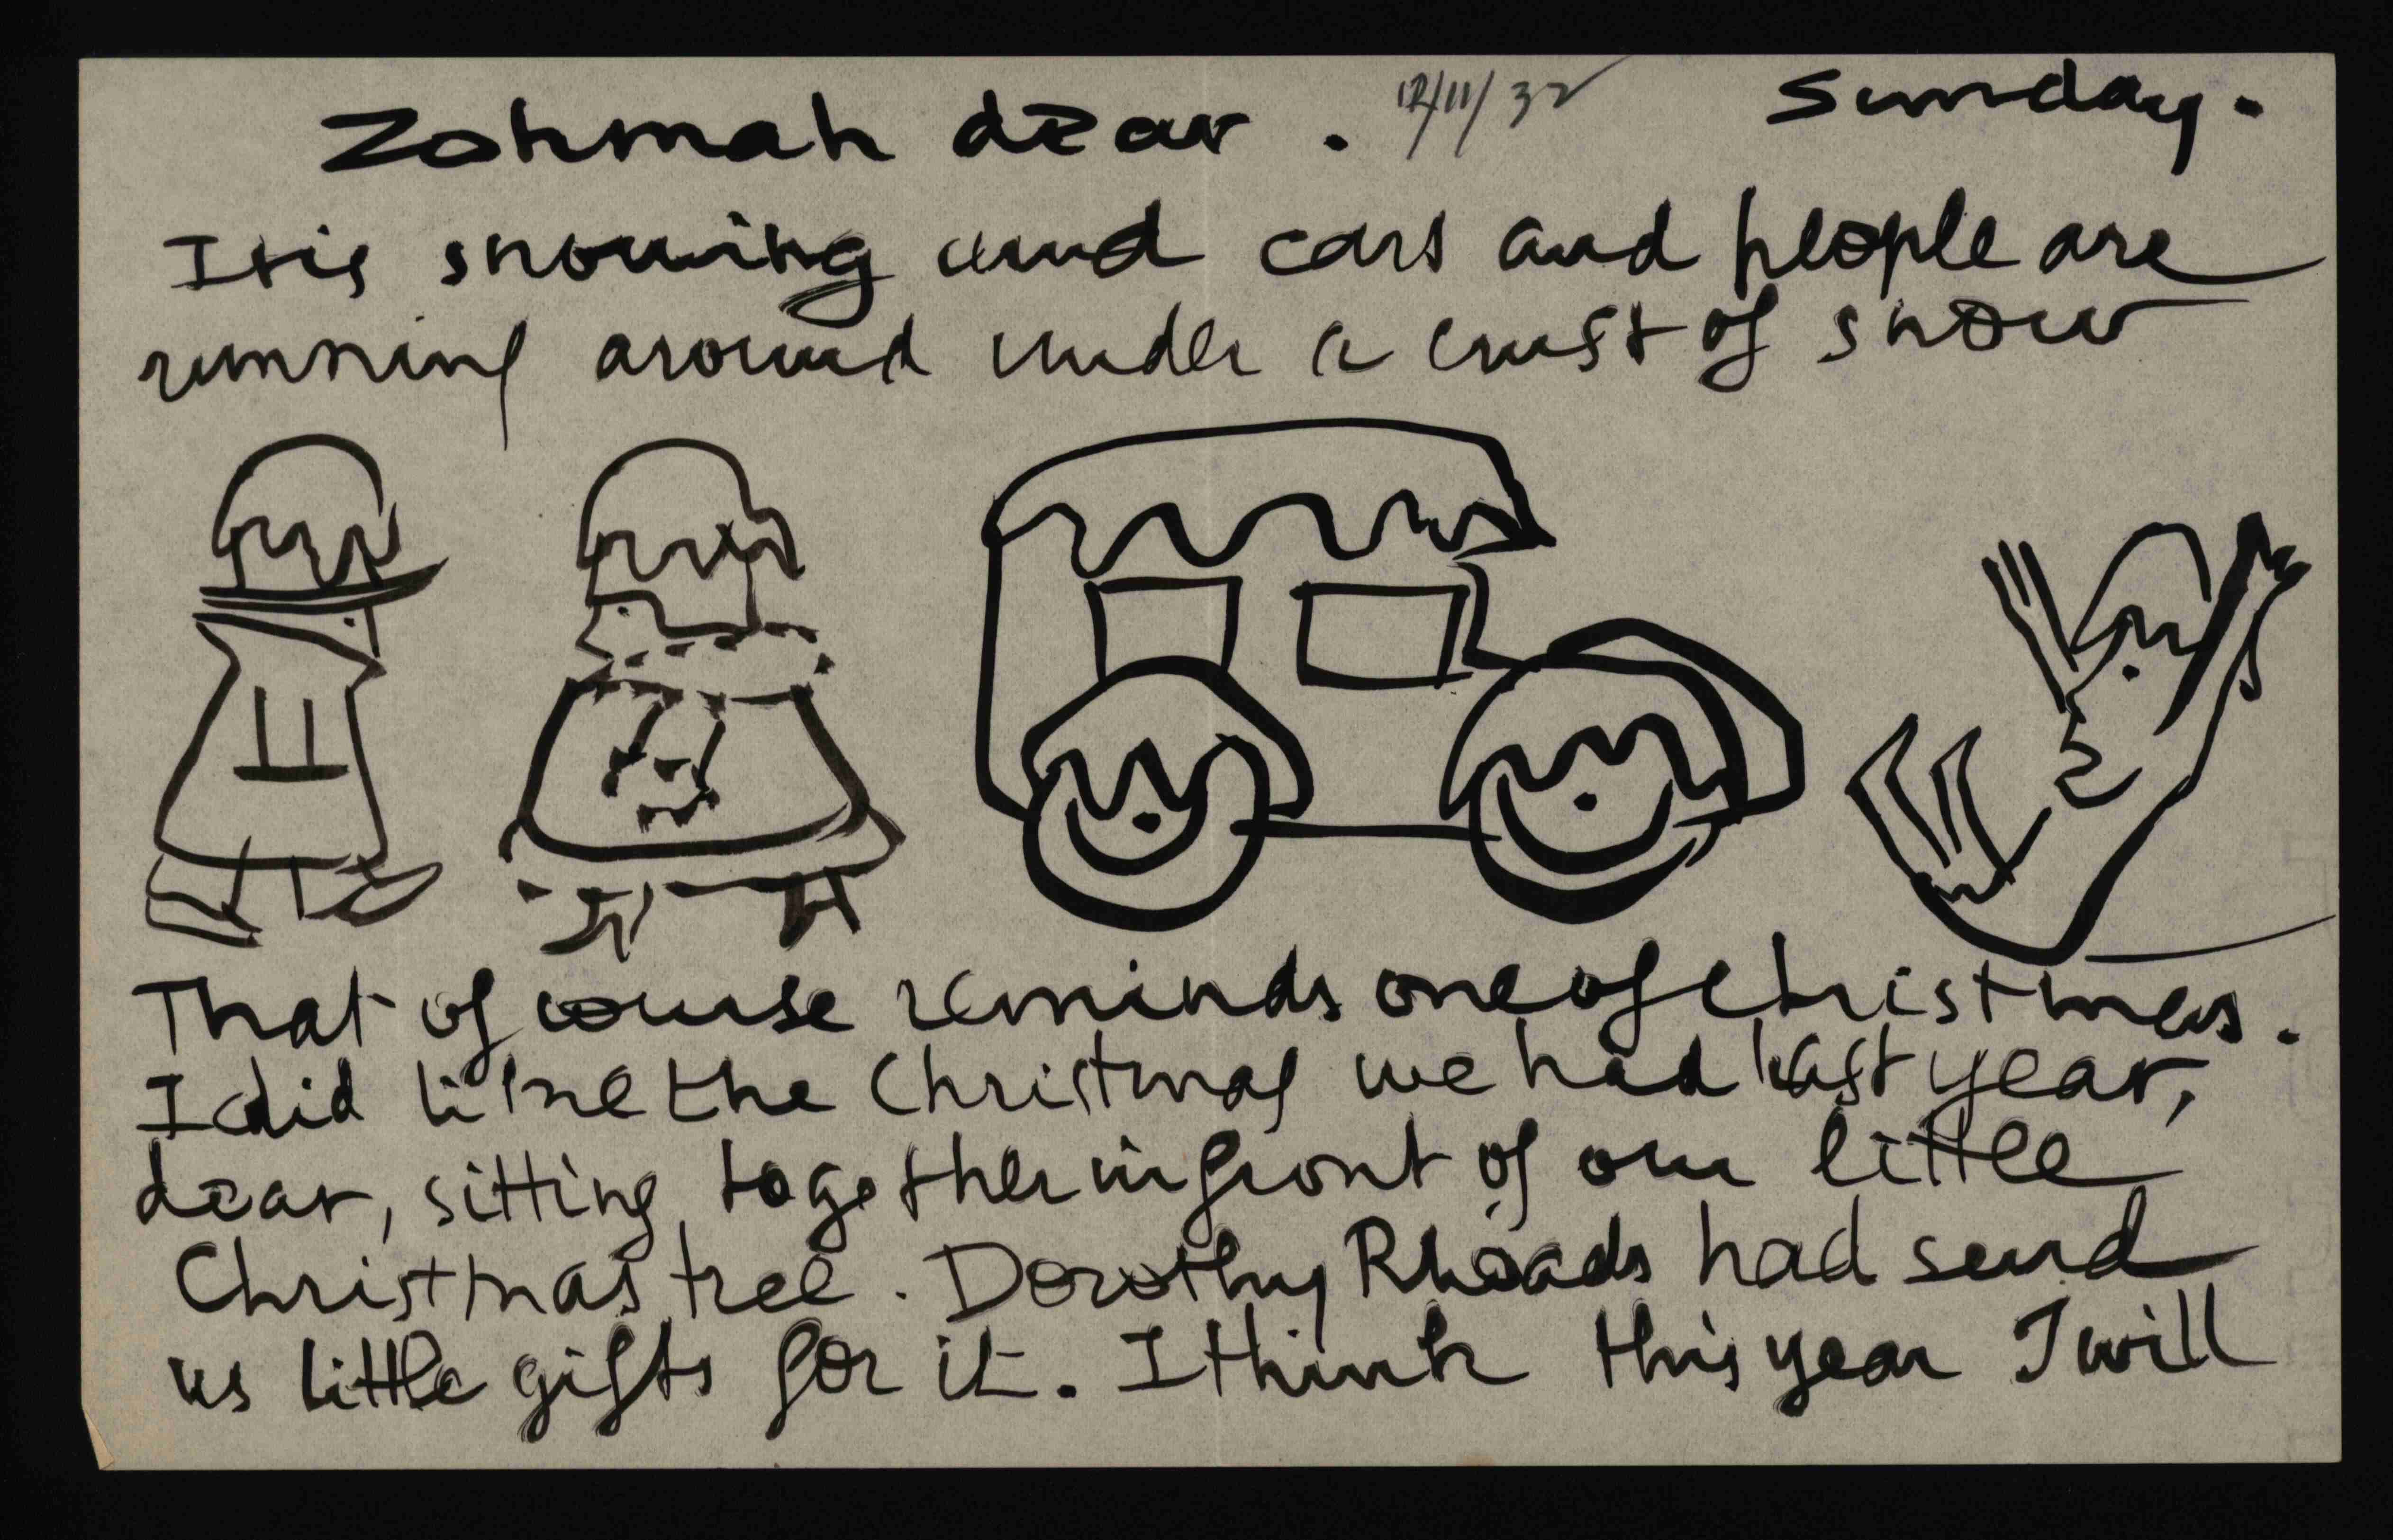 Zohmah dear. 12/11/32 Sunday.
It is snowing and cars and people are
running around under a crust of snow
That of course reminds one of christmas.
I did like the Christmas we had last year,
dear, sitting together in front of our little
Christmas tree. Dorothy Rhoads had send
us little gifts for it. I think this year I will